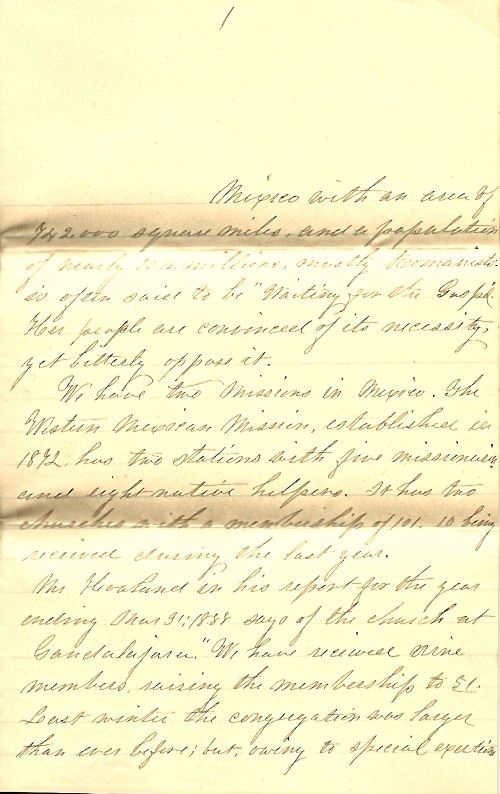 1
Mexico with an area of
742.000 square miles, and a population
of nearly 10 ½ millions, mostly Romanists
is often said to be "Waiting for the Gospel.
Her people are convinced of its necessity,
yet bitterly oppose it.
We have two Missions in Mexico. The
Western Mexican Mission, established in
1872 has two stations with five missionaries
and eight native helpers. It has two
churches with a membership of 101. 10 being
received during the last year.
Mr Howland in his report for the year
ending Mar 31, 1888 says of the church at
Gaudalajara." We have received nine
members, raising the membership to 51.
Last winter the congregation was larger
than ever before; but, owing to special exertions